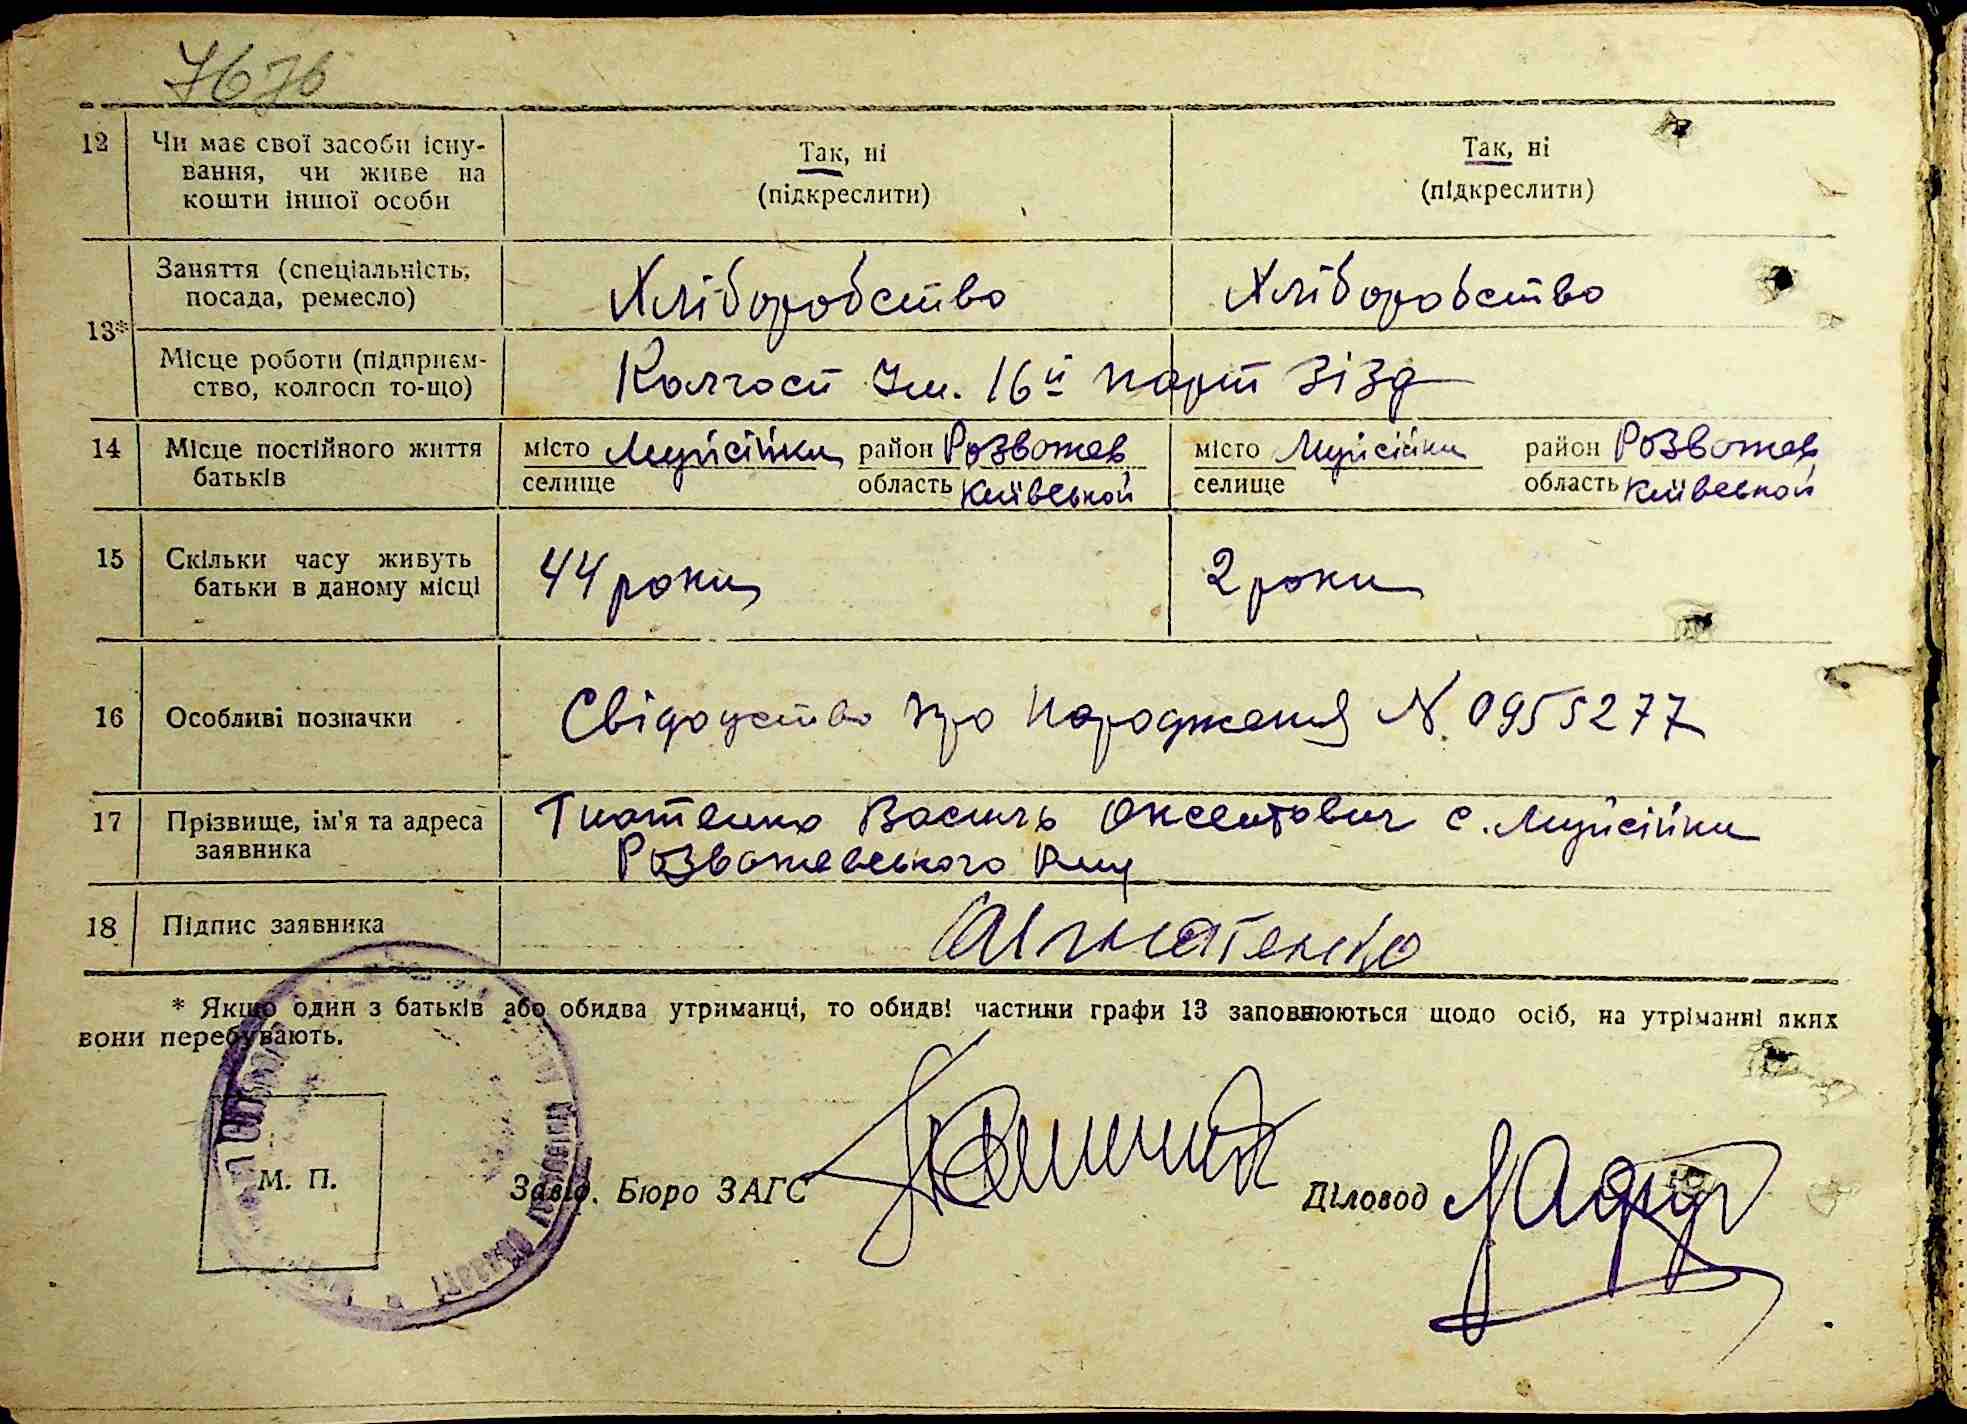 7676
12 Чи має свої засоби існу- Так, ні Так, ні
вання, чи живе на (підкреслити) (підкреслити)
кошти іншої особи
13* Заняття (спеціальність, Хліборобство Хліборобство
посада, ремесло)
Місце роботи (підприєм- Колгосп Ім. 16й парт зізд
ство, колгосп то-що)
14 Місце постійного життя місто Мусійки район Розважев місто Мусійки район Розважев
батьків селище область Київської селище область Київської
15 Скільки часу живуть 44 роки 2 роки
батьки в даному місці
16 Особливі позначки Свідоцтво про народження N. 0955277
17 Прізвище, ім'я та адреса Гнатенко Василь Оксентович с. Мусійки
заявника Розважевського
18 Підпис заявника Гнатенко
* Якщо один з батьків або обидва утриманці, то обидві частини графи 13 заповнюються щодо осіб, на утріманні яких
вони перебувають.
М. П. Завід. Бюро ЗАГС Діловод